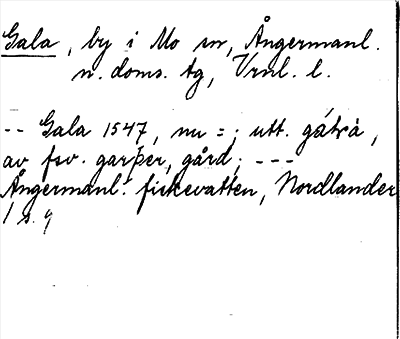 Gala, by i Mo sn, Ångermanl.
n. doms. tg, Vrnl. l.
-- Gala 1547, nu = ; utt.
av fsv. garþer, gård; ---
Ångermanl:s fiskevatten, Nordlander
1 s. 9